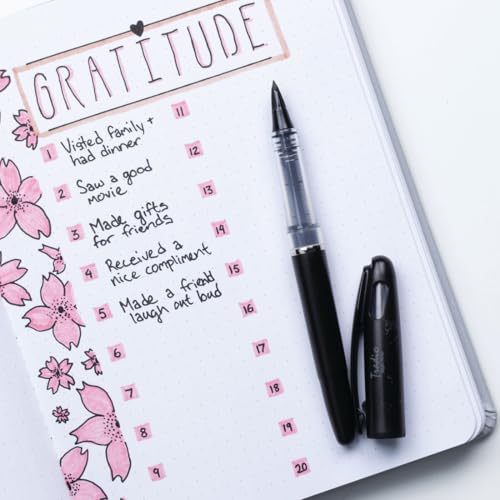 GRATITUDE
1 Visited family +
had dinner
2 Saw a good
movie
3 Made gifts
for friends
4 Received a
nice compliment
5 Made a friend
laugh out loud
6
7
8
9
11
12
13
14
15
16
17
18
19
20
Tradio